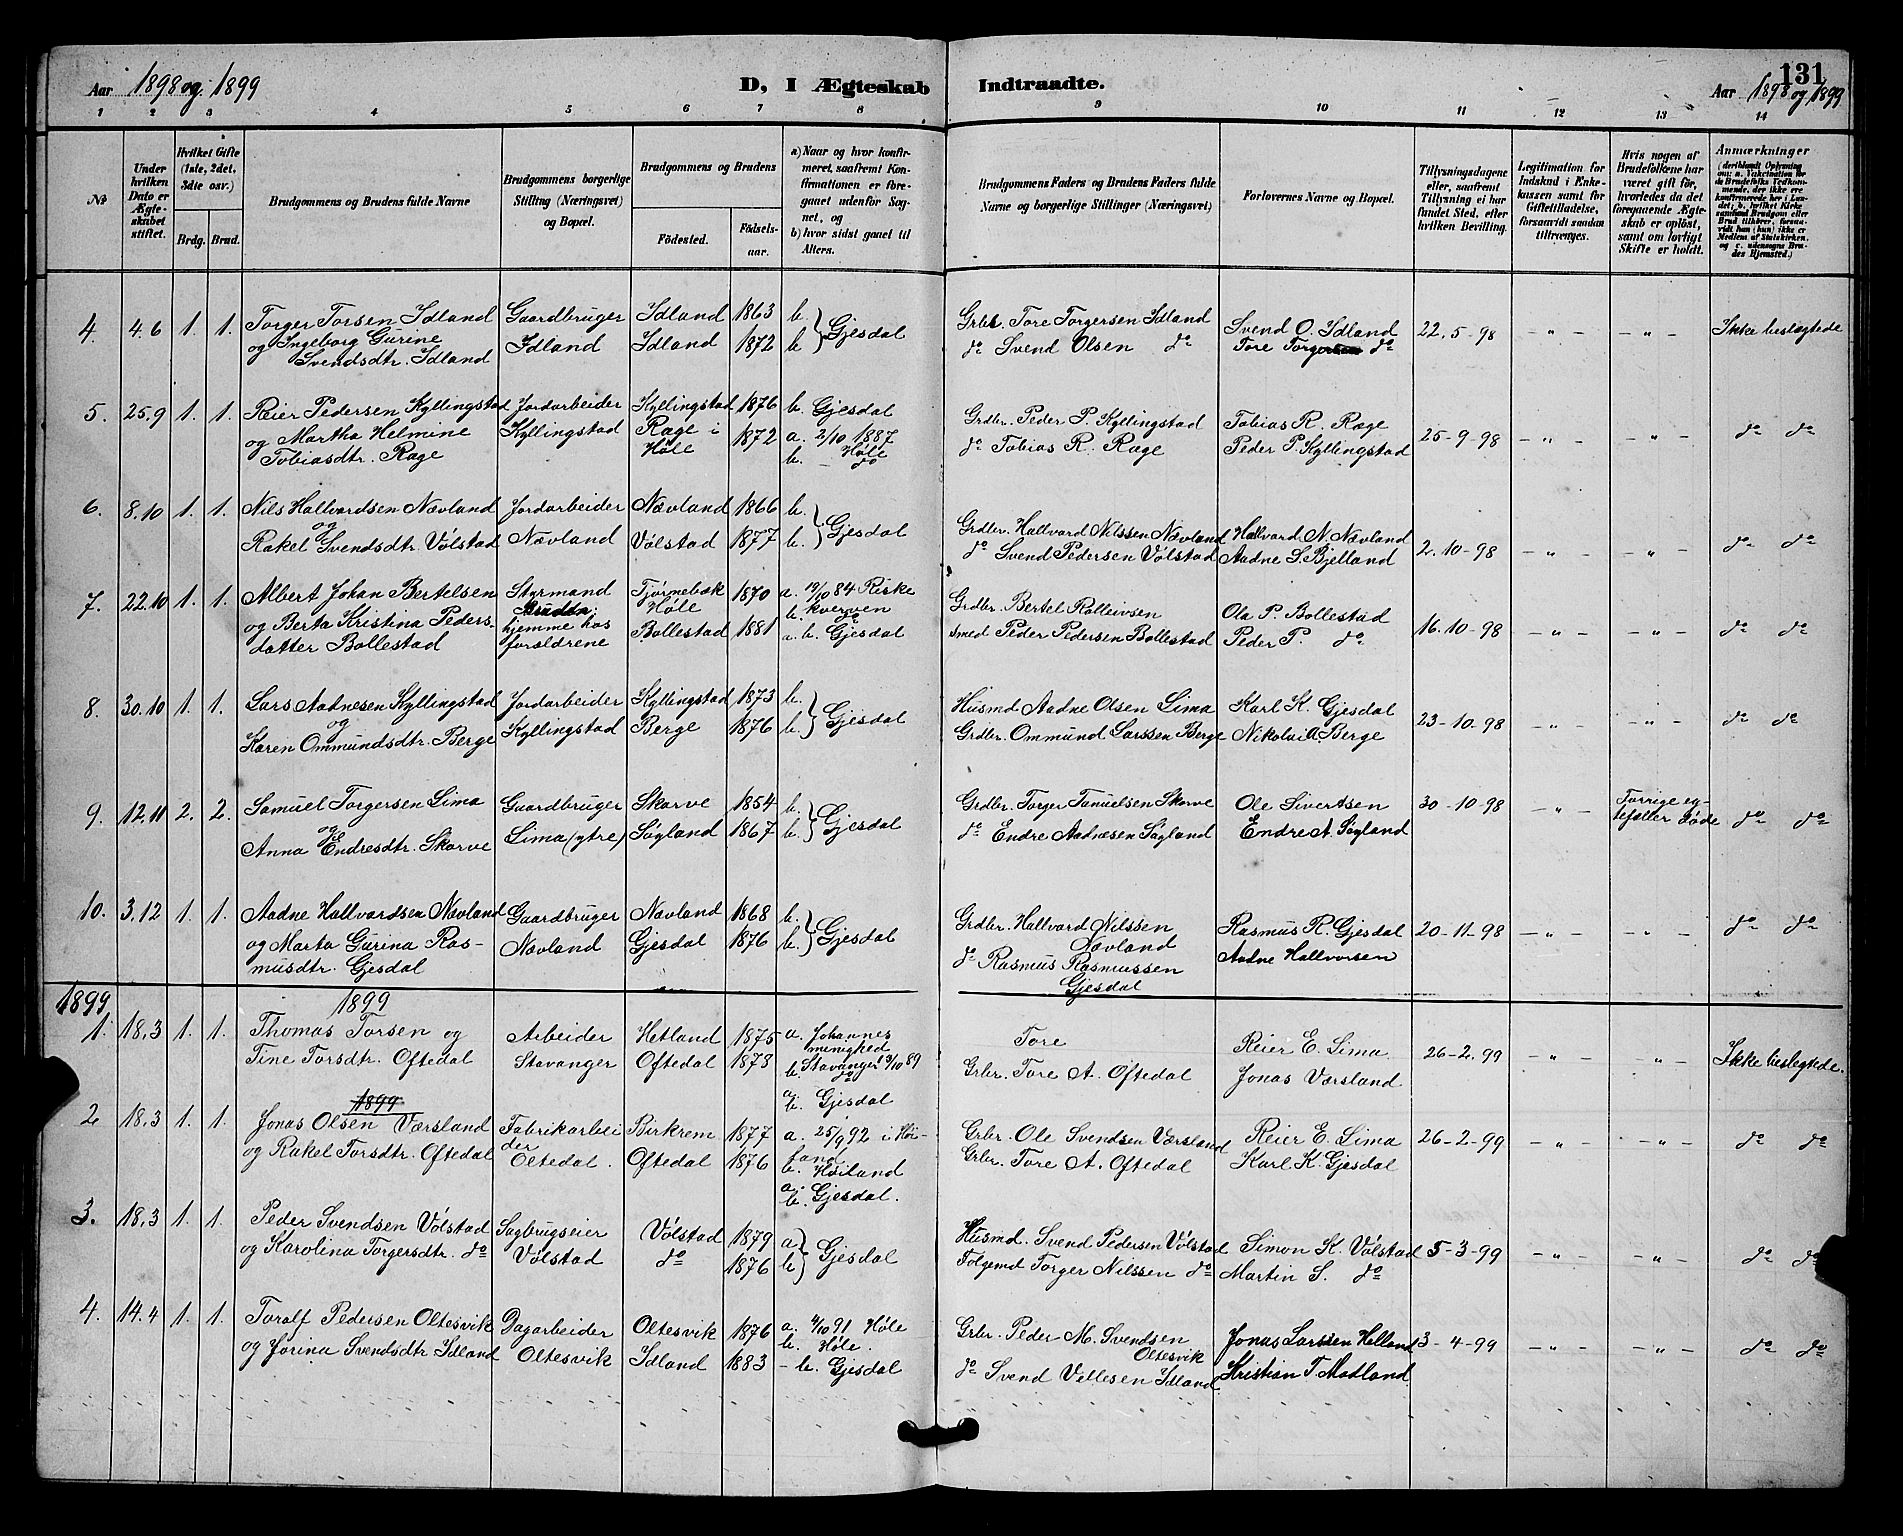 Aar 1898 og 1899
D, I Ægteskab Indtraadte.
131
Aar 1898 og 1899
1 2 3 4 5 6 7 8 9 10 11 12 13 14
No
Under hvilken Dato er Ægteskabet stiftet.
Hvilket Gifte (1ste, 2det, 3die osv.)
Brdg. Brud.
Brudgommens og Brudens fulde Navne
Brudgommens borgerlige Stilling (Næringsvei) og Bopæl.
Brudgommens og Brudens
Fødested.
Fødselsaar.
a) Naar og hvor konfirmeret, saafremt Konfirmationen er foregaaet udenfor Sognet, og
b) hvor sidst gaaet til Alters.
Brudgommens Faders og Brudens Faders fulde Navne og borgerlige Stillinger (Næringsvei)
Forlovernes Navne og Bopæl.
Tillysningsdagene eller, saafremt Tillysning ei har fundet Sted, efter hvilken Bevilling.
Legitimation for Indskud i Enkekassen samt for Giftetilladelse, forsaavidt saadan tiltrænges.
Hvis nogen af Brudefolkene har været gift før, hvorledes da det foregaaende Ægteskab er opløst, samt om lovligt Skifte er holdt.
Anmærkninger
(deriblandt Oplysning om: a. Vaksination for de Brudefolks Vedkommende, der ikke ere konfirmerede her i Landet; b. hvilket Kirkesamfund Brudgom eller Brud tilhører, forsaavidt han (hun) ikke er Medlem af Statskirken, og c. udensogns Brudes Hjemsted.)
4. 4.6 1. 1. Torger Torsen Idland Gaardbruger Idland 1863 b. Gjesdal Grbr. Tore Torgersen Idland Svend O. Idland 22.5-98 - " - - " - Ikke beslægtede
og Ingeborg Gurine Idland Idland 1872 b. do Svend Olsen do Tore Torgersen do
Svendsdtr. Idland
5. 25.9 1. 1. Reier Pedersen Kyllingstad Jordarbeider Kyllingstad 1876 b. Gjesdal Grdbr. Peder P. Kyllingstad Tobias R. Rage 25-9-98 - " - - " - do do
og Martha Helmine Kyllingstad Rage i 1872 a. 2/10 1887 do Tobias R. Rage Peder P. Kyllingstad
Tobiasdtr. Rage Høle b. - Høle do
6. 8.10 1. 1. Nils Hallvardsen Nævland Jordarbeider Nævland 1866 b. Gjesdal Grdbr. Hallvard Nilssen Nævland Hallvard N. Nævland 2.10-98 - " - - " - do do
og
Rakel Svendsdtr. Vølstad Nævland Vølstad 1877 b. do Svend Pedersen Vølstad Aadne S. Bjelland
7. 22.10 1. 1. Albert Johan Bertelsen Styrmand Tjørmebæk 1870 a. 19/10 84 Riske Grdbr. Bertel Rolleivsen Ola P. Bollestad 16.10-98 - " - - " - do do
og Berta Kristina Peders- Bruden hjemme hos Høle b. kverven do
datter Bollestad forældrene Bollestad 1881 a. b. Gjesdal Smed Peder Pedersen Bollestad Peder P. do
8. 30.10 1. 1. Lars Aadnesen Kyllingstad Jordarbeider Kyllingstad 1873 b. Gjesdal Husmd Aadne Olsen Lima Karl K. Gjesdal 23-10-98 - " - - " - do do
og
Karen Ommundsdtr. Berge Kyllingstad Berge 1876 b. Grdbr. Ommund Larssen Berge Nikolai A. Berge
9. 12.11 2. 2. Samuel Torgersen Lima Gaardbruger Skorve 1854 b. Gjesdal Grdbr. Torger Tanuelsen Skorve Ole Sivertsen 30-10-98 - " - Forrige eg- do do
og tefæller døde
Anna Endresdtr. Skorve Lima (ytre) Søgland 1867 b. do Endre Aadnesen Søgland Endre A. Søgland
10. 3.12 1. 1. Aadne Hallvardsen Nævland Gaardbruger Nævland 1868 b. Gjesdal Grdbr. Hallvard Nilssen Nævland Rasmus R. Gjesdal 20-11-98 - " - - " - do do
og Marta Gurina Ras- Nævland Gjesdal 1876 b. do Rasmus Rasmussen Gjesdal Aadne Hallvorsen
musdtr. Gjesdal
1899 1899
1. 18.3 1. 1. Thomas Torsen og Arbeider Hetland 1875 a. Johannes menighed Tore Reier E. Lima 26-2.99 - " - - " - Ikke beslegtede.
Tine Torsdtr. Oftedal Stavanger Oftedal 1873 b. Stavanger /10 89 do Grbr. Tore A. Oftedal Jonas Værsland
a. b. Gjesdal
1899
2 18.3 1. 1. Jonas Olsen Værsland Fabrikarbei Birkrem 1877 a. 25/9 92 i Høi- Grbr. Ole Svendsen Værsland Reier E. Lima 26-2-99 - " - - " - do do
og Rakel Torsdtr. Oftedal der Oltedal. Oftedal 1876 land b. Høiland Grbr. Tore A. Oftedal Karl K. Gjesdal
a. b. Gjesdal.
3. 18.3 1. 1. Peder Svendsen Vølstad Sagbrugseier Vølstad 1879 a Gjesdal Husmd. Svend Pedersen Vølstad Simon K. Vølstad 5-3-99 - " - - " - do do
og Karolina Torgersdtr. do Vølstad do 1876 b Folgemd Torger Nilssen do Martin S. do
4. 14.4 1. 1. Toralf Pedersen Oltesvik Dagarbeider Oltesvik 1876 a. 4/10 91 Høle Grbr. Peder M. Svendsen Oltesvik Jonas Larssen Helland 3-4-99 - " - - " - do do
b. Høle.
og Jorina Svendsdtr Idland Oltesvik Idland 1883 - b. Gjesdal do Svend Vellesen Idland Kristian T Madland.